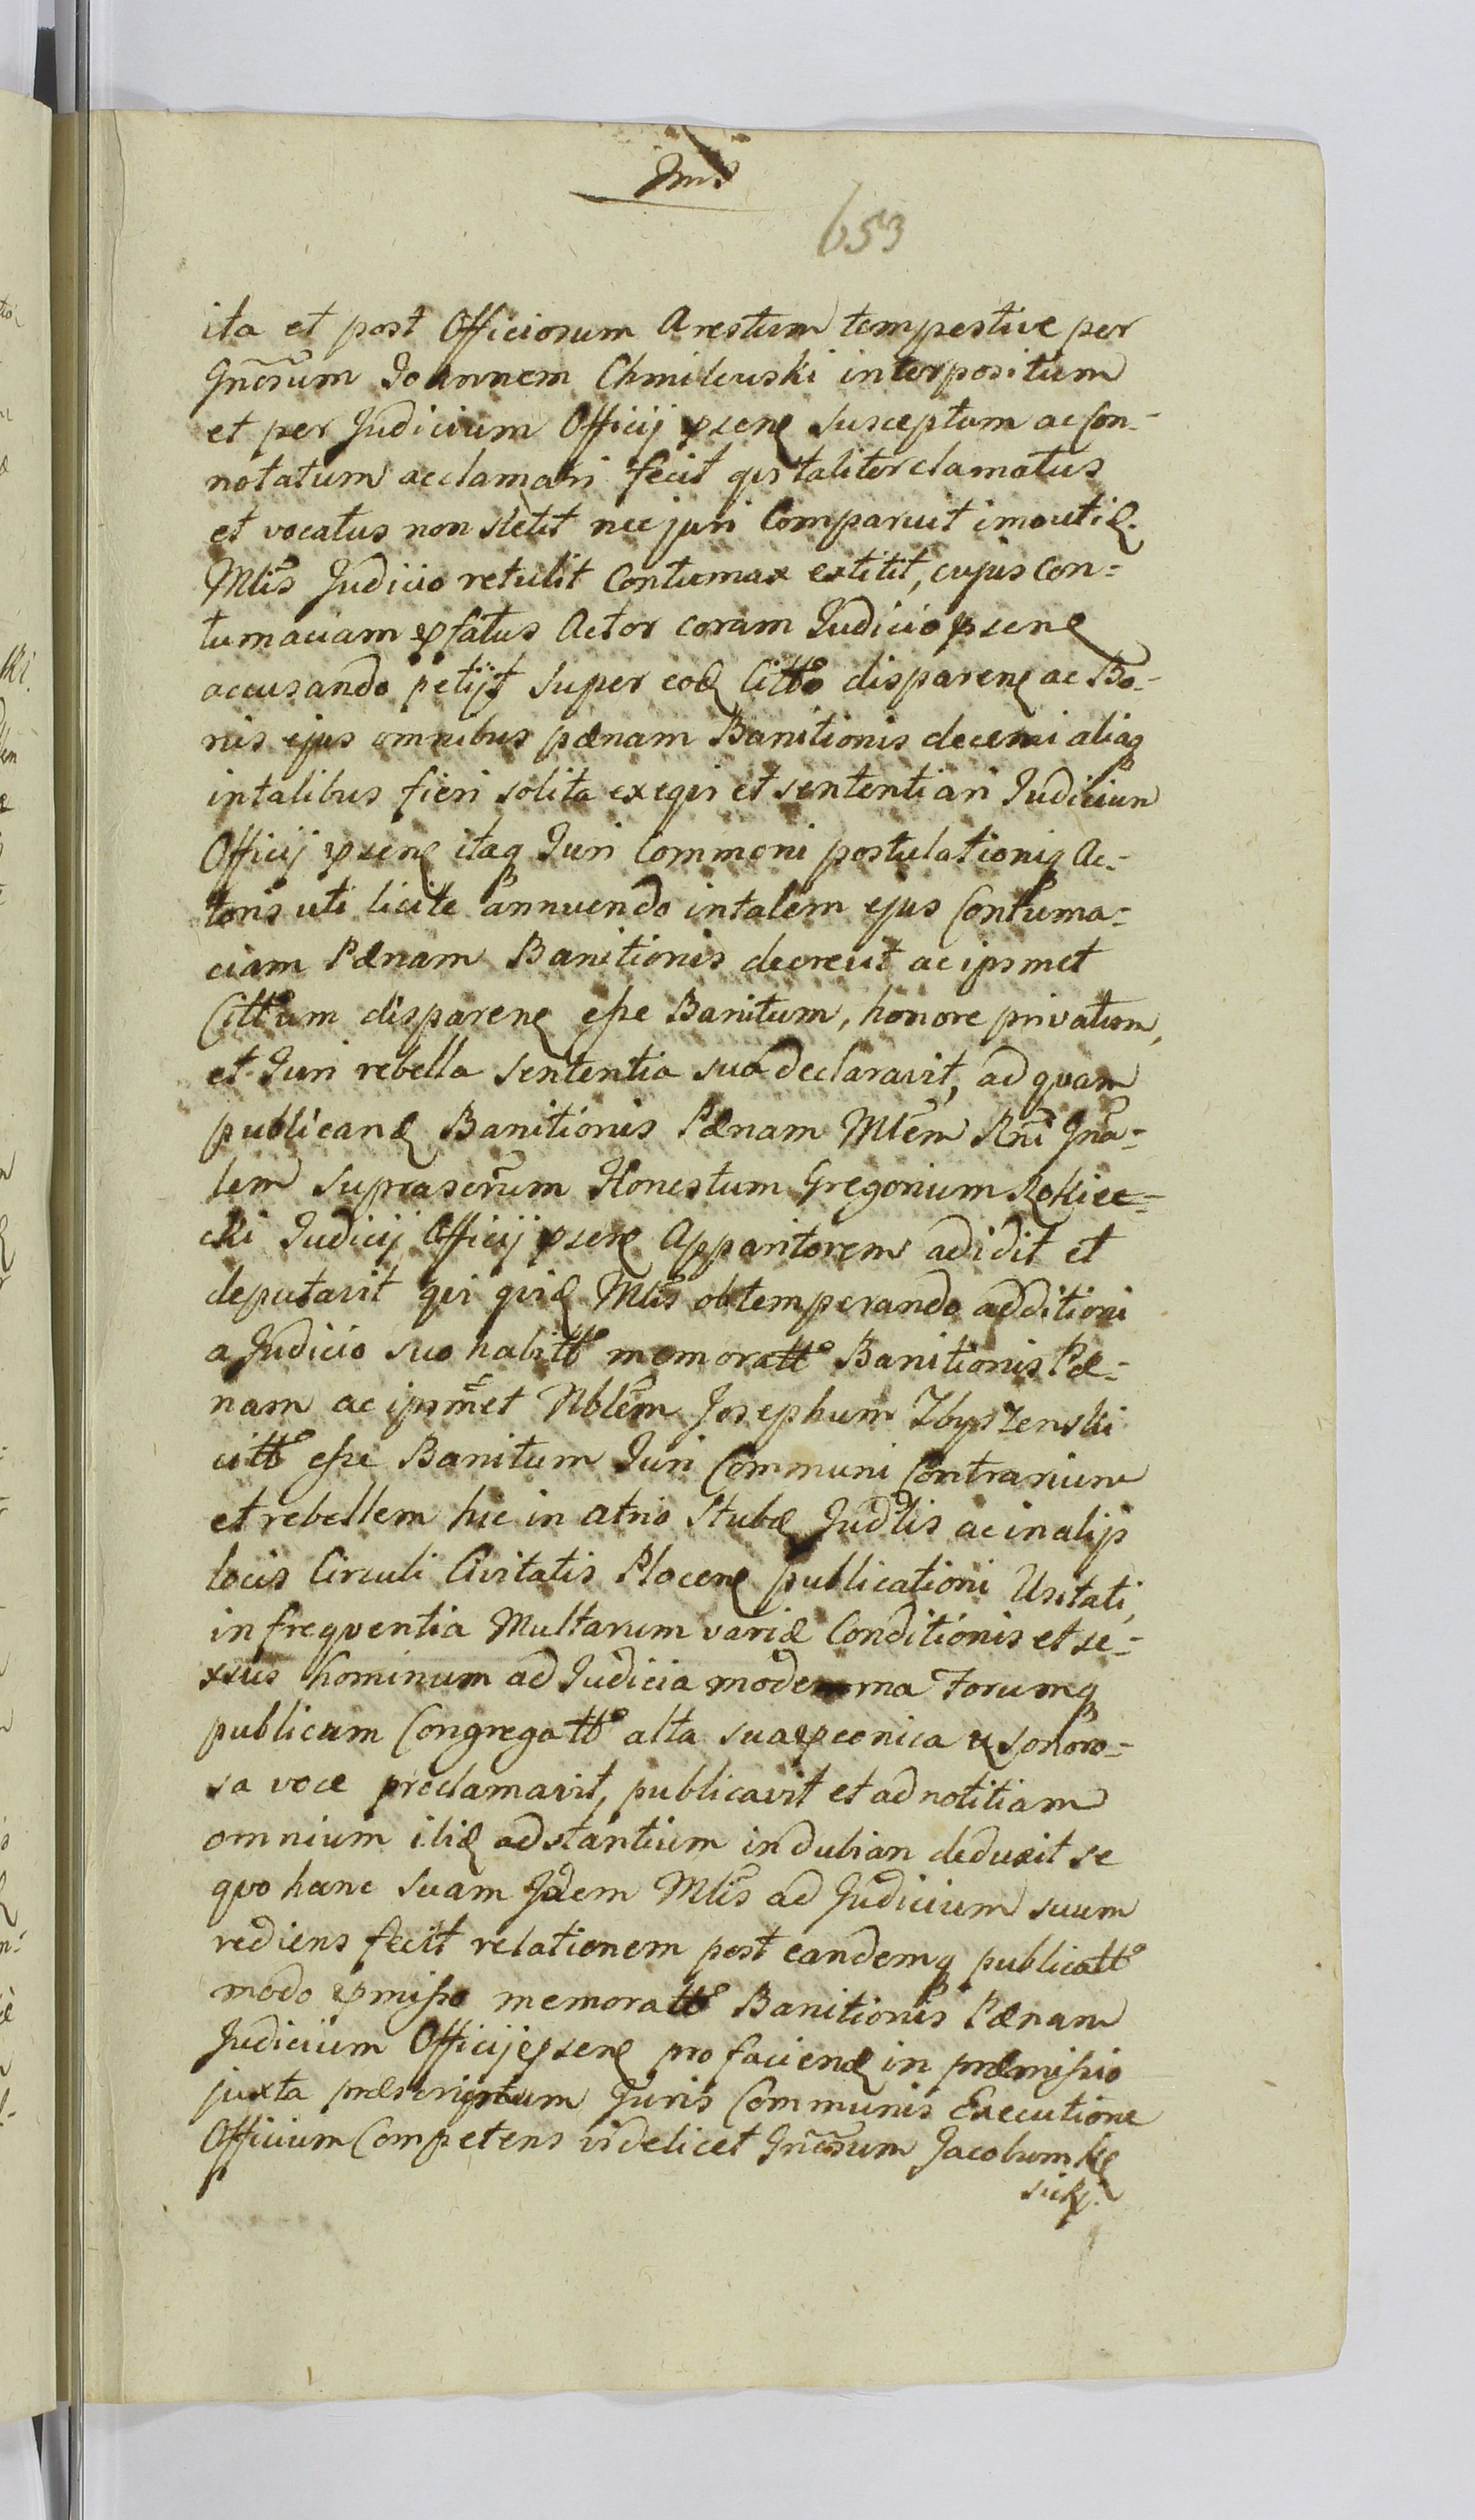 653
ita et post Officiosum Arestum tempestive per
Gnosum Joannem Chmilewski interpositum
et per Judicium Officij psens susceptum ac Con-
notatum acclamari fecit qui taliter clamatus
et vocatus non stetit nec juri Comparuit imo uti
Mlis Judicio retulit Contumax extitit, cujus Con=
tumaciam pfatus Actor coram Judicio psen
accusando petijt super eod Citto disparen ac Bo-
nis ejus omnibus pænam Banitionis decerni aliaq
in talibus fieri solita exeqvi et sententiari Judicium
Officij psens itaq Juri Commoni postulationiq Ac-
toris uti licite annuendo in talem ejus Contuma=
ciam Pænam Banitionis decrevit ac ipsmet
Cittum disparen esse Banitum, honore privatum,
et Juri rebella sententia sua declaravit, ad qvam
publicand Banitionis Pænam Mlem Rni Gna=
lem suprascrum Honestum Gregorium Rokiec=
cki Judicij Officij psen Apparitorem adidit et
deputavit qvi qvid Mlis obtemperando additioni
a Judicio suo habitto memoratto Banitionis Pæ=
nam ac ipsmet Nblem Josephum Zbyszenski
citto esse Banitum Juri Communi Contrarium
et rebellem hic in atrio Stubæ Judlis ac in alijs
locis Circuli Civitatis Plocen publicationi Usitati,
in freqventia Multarum variæ Conditionis et se=
xsus hominum ad Judicia moderna Forumq
publicum Congregatto alta sua pconica et sonoro=
sa voce proclamavit, publicavit et ad notitiam
omnium ibid adstantium indubian deduxit se
qvo hanc suam Idem Mlis ad Judicium suum
rediens fecit relationem post eandemq publicatto
modo pmisso memoratto Banitionis Pænam
Judicium Officij psens pro faciend in præmissio
juxta præscriptum Juris Communis Executione
Officium Competens videlicet Gnosum Jacobum Kę
sicki.